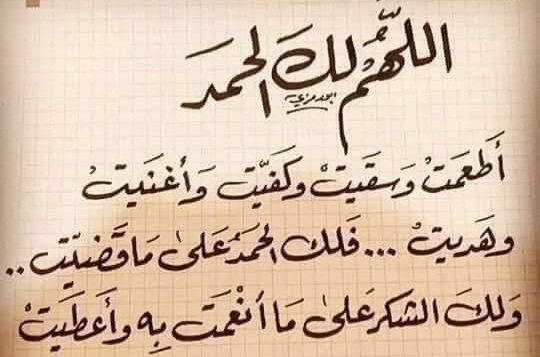 اللّهُم لك الحمد
أَطعَمتْ وَسَقيتْ وكَفيّت وَأغنَيتْ
وهَديتْ ... فَلك الحَمدُ عَلىٰ مَا قَضيّت ..
وَلكَ الشكر عَلىٰ مَا أنْعَمت بِه وأَعطَيتْ